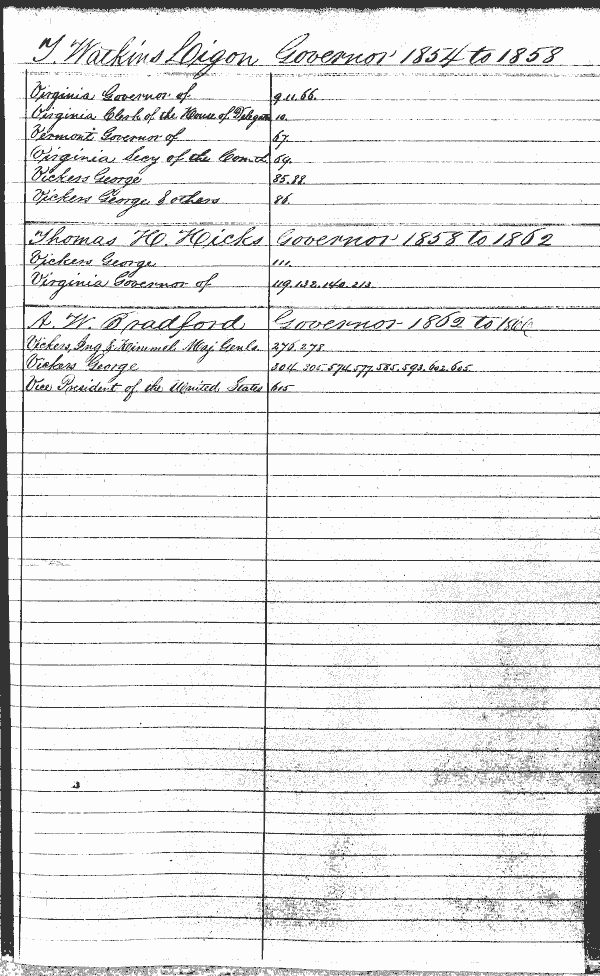 T. Watkins Ligon Governor 1854 to 1858
Virginia Governor of 9.11.66.
Virginia Clerk of the House of Delegates 10.
Vermont Governor of 67.
Virginia Secy of the Comth. 69.
Vickers George 85.88.
Vickers George & others 86.
Thomas H. Hicks Governor 1858 to 1862
Vickers George 111.
Virginia Governor of 119.132.140.213.
A. W. Bradford Governor 1862 to 1866
Vickers, & Kimmel Maj Genls. 276.278
Vickers George 304.305.574.577.585.593.602.605.
Vice President of the United States 615